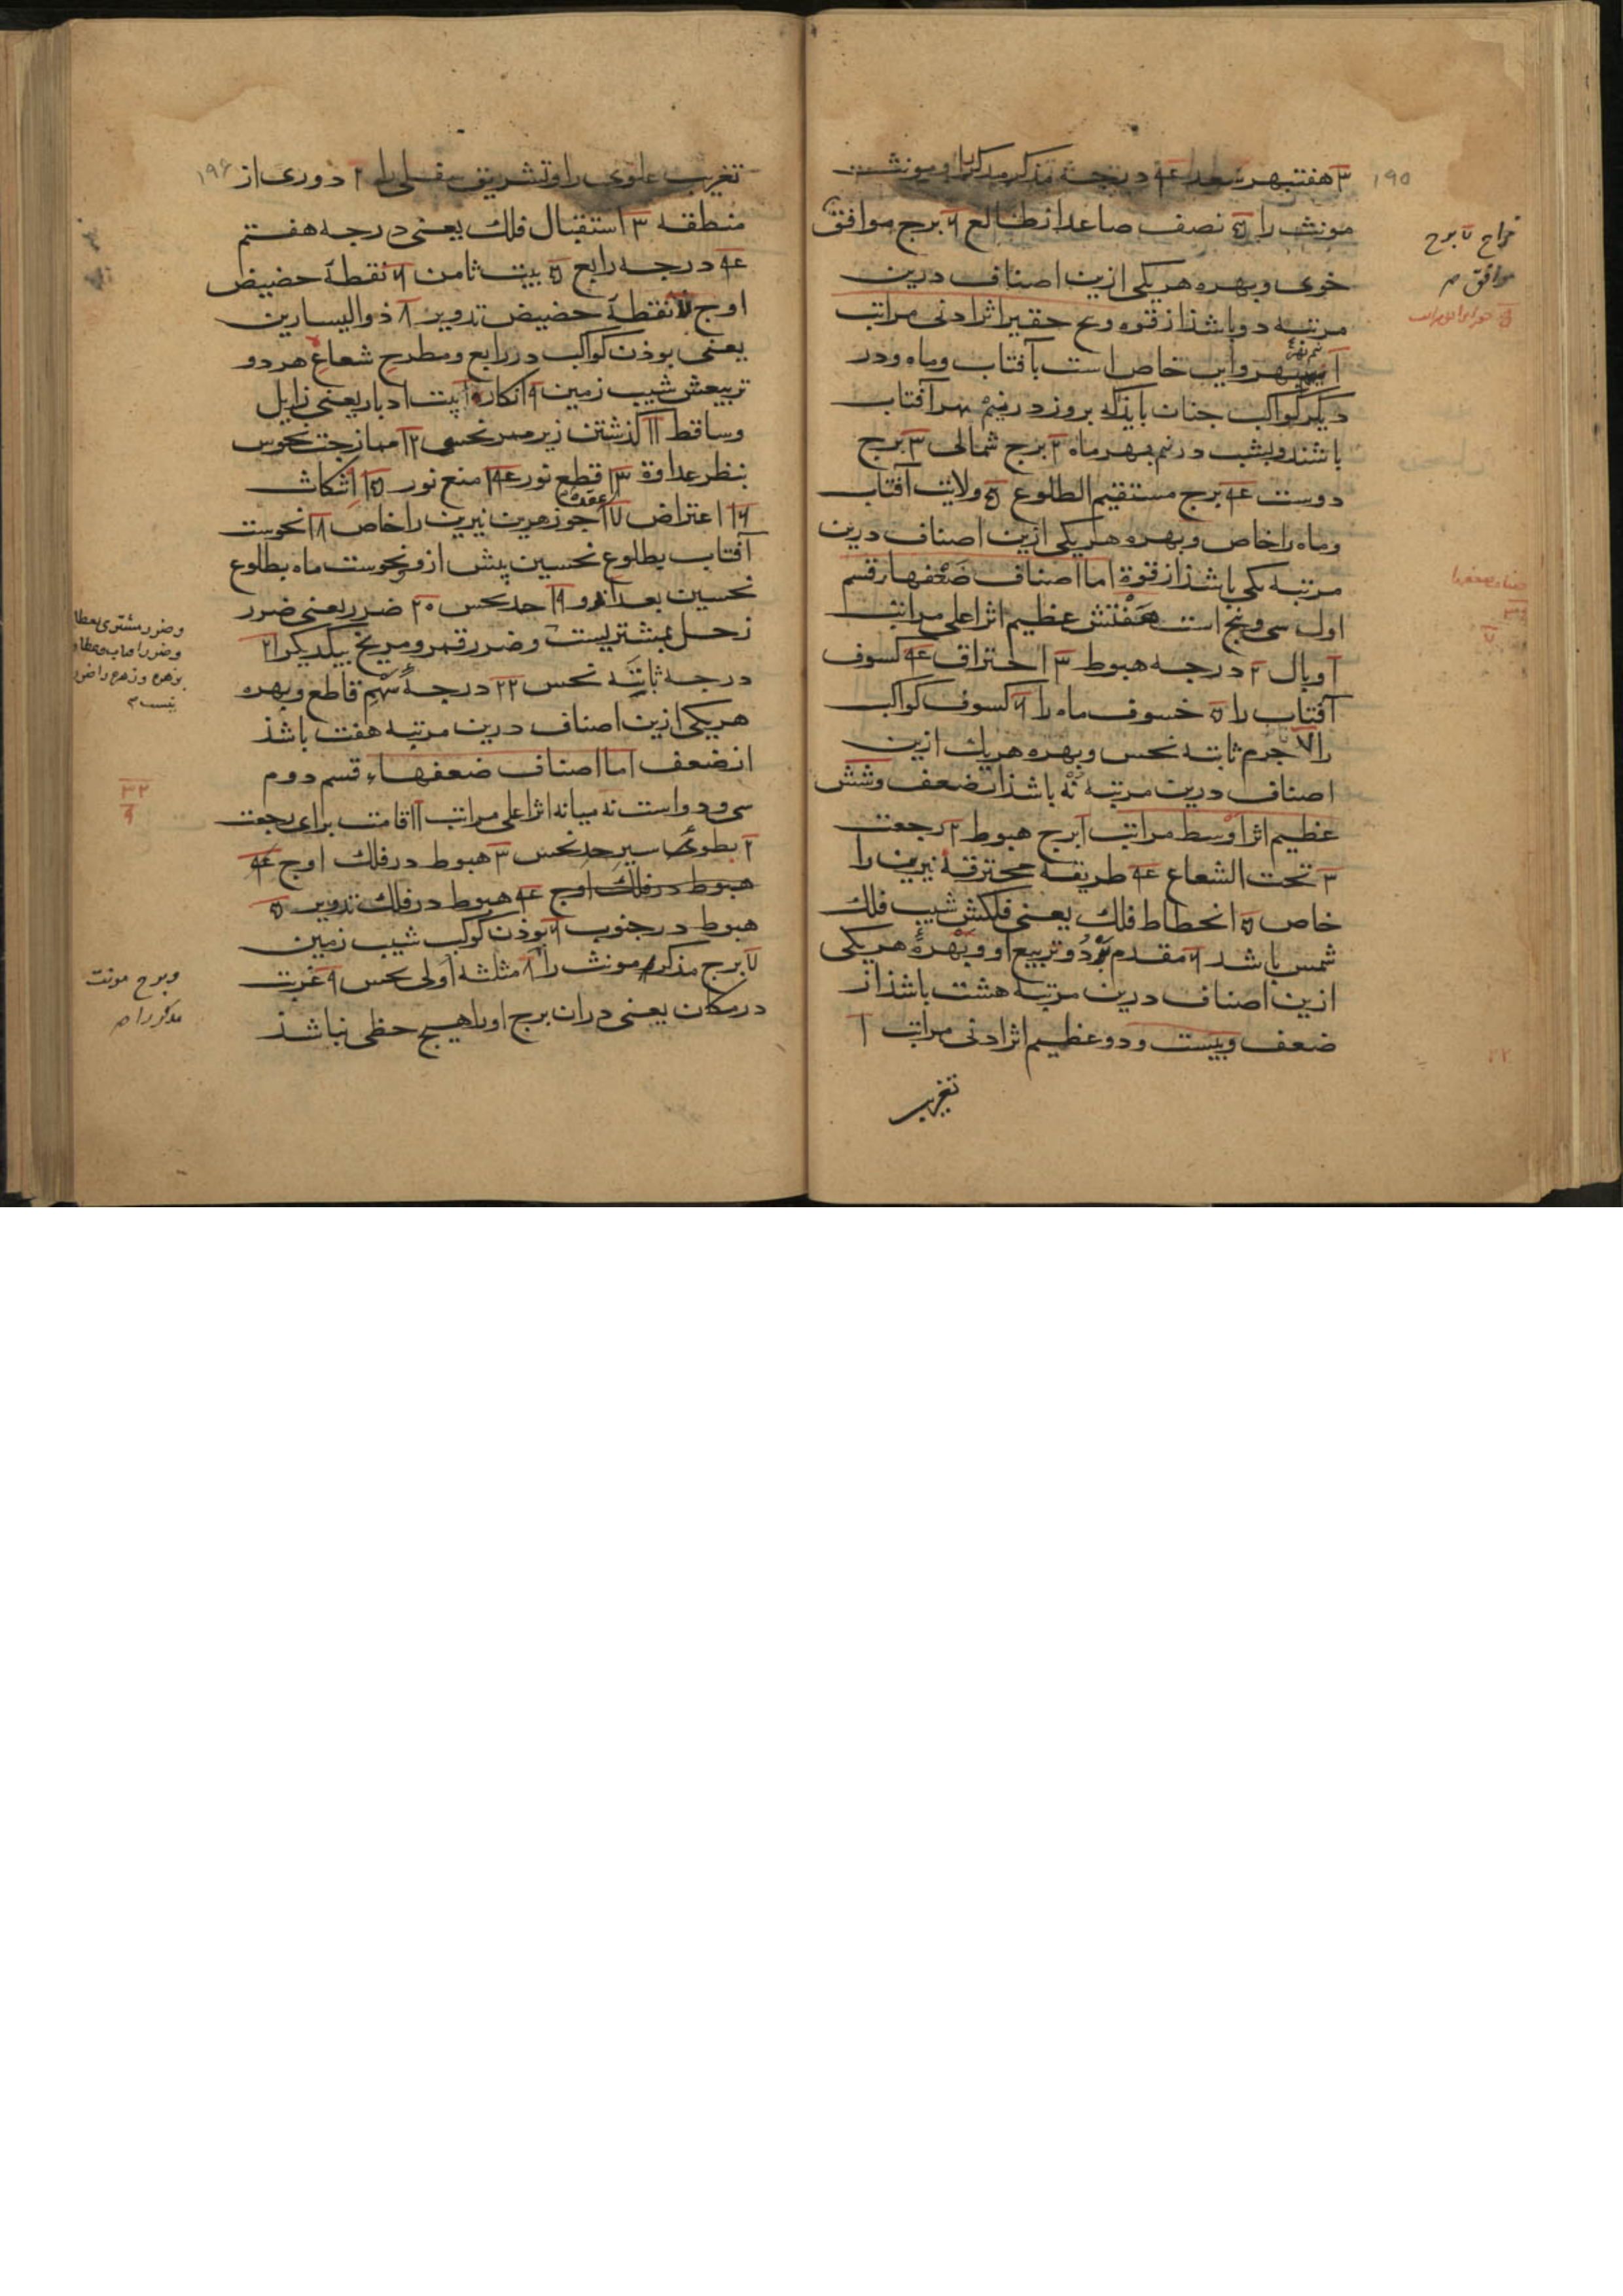 ۱۹۵
۳ هفتبهر سعد ۴ درجهٔ مذکر مذکر را و مونث
مونث را ۵ نصف صاعد از طالع ۶ برج موافق
خوی و بهره هر یکی ازین اصناف درین
مرتبه دو باشذ از قوه و پنج حقیر اثر ادنی مراتب
آ نیم بهر و این خاص است بآفتاب و ماه و در
دیکر کواکب جنان بایذ که بروز در نیم بهر آفتاب
باشند و بشب در نیم بهر ماه ۲ برج شمالی ۳ برج
دوست ۴ برج مستقیم الطلوع ۵ ولایت آفتاب
و ماه را خاص و بهره هر یکی ازین اصناف درین
مرتبه یکی باشذ از قوة اما اصناف ضعفها از قسم
اول سی و پنج است هفتش عظیم اثر اعلی مراتب
آ وبال ۲ درجه هبوط ۳ احتراق ۴ کسوف
آفتاب را ۵ خسوف ماه را ۶ کسوف کواکب
را ۷ جرم ثابته نحس و بهره هر یک ازین
اصناف درین مرتبه نُه باشذ از ضعف و شش
عظیم اثر اوسط مراتب آ برج هبوط ۲ رجعت
۳ تحت الشعاع ۴ طریقه محترقه نیرین را
خاص ۵ انحطاط فلک یعنی فلکش شیب فلک
شمس باشد ۶ مقدم بر دو تربیع او و بهرهٔ هر یکی
ازین اصناف درین مرتبه هشت باشذ از
ضعف و بیست و دو عظیم اثر ادنی مراتب آ
تغریب
مزاج ۷ برج
موافق
۲۲
۱۹۶
تغریب علوی را و تشریق سفلی را ۲ دوری از
منطقه ۳ استقبال فلک یعنی درجه هفتم
۴ درجه رابع ۵ بیت ثامن ۶ نقطهٔ حضیض
اوج ۷ نقطهٔ حضیض تدویر ۸ ذو الیسارین
یعنی بوذن کواکب در رابع و مطرح شعاع هر دو
تربیعش شیب زمین ۹ انکار ۱۰ بیت ادبار یعنی زایل
و ساقط ۱۱ کذشتن زیر ممر نحسی ۱۲ ممازجت نحوس
بنظر عداوة ۱۳ قطع نور ۱۴ منع نور ۱۵ اِنتکاث
۱۶ اعتراض ۱۷ عقدهٔ جوزهرین نیرین را خاص ۱۸ نحوست
آفتاب بطلوع نحسین پیش ازو و نحوست ماه بطلوع
نحسین بعد ازو ۱۹ حد نحس ۲۰ ضرر یعنی ضرر
زحل بمشتریست و ضرر قمر و مریخ بیکدیکر ۲۱
درجه ثابته نحس ۲۲ درجهٔ سهم قاطع و بهره
هر یکی ازین اصناف درین مرتبه هفت باشذ
از ضعف اما اصناف ضعفهاء قسم دوم
سی و دو است نه میانه اثر اعلی مراتب آ اقامت برای رجعت
۲ بطوئ سیر حد نحس ۳ هبوط در فلک اوج ۴
هبوط در فلک اوج ۴ هبوط در فلک تدویر ۵
هبوط در جنوب ۶ بوذن کوکب شیب زمین
۷ برج مذکر مونث را ۸ مثلثه اولی نحس ۹ غربت
در مکان یعنی در ان برج اورا هیچ حظی نباشذ
و ضرر مشتری بعطا
و ضرر
بزهره و زهره را ضرر
نیست
۳۲
۹
و برج مونث
مذکر را